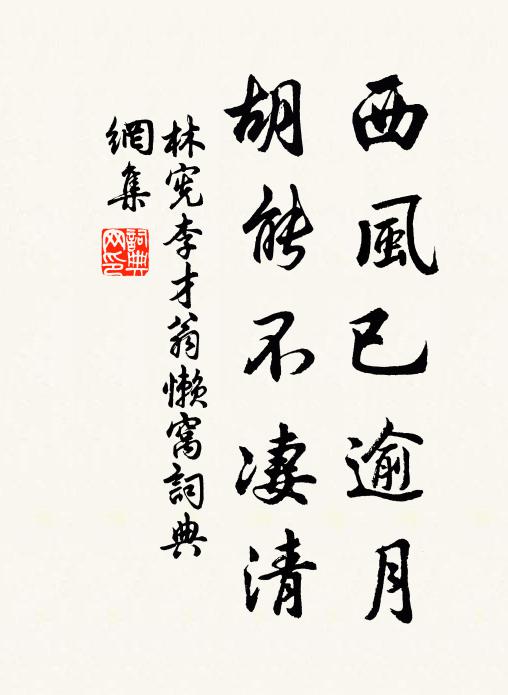 西風已逾月
胡能不凄清
林宪李才翁懒窩詞典
網集
詞典网印